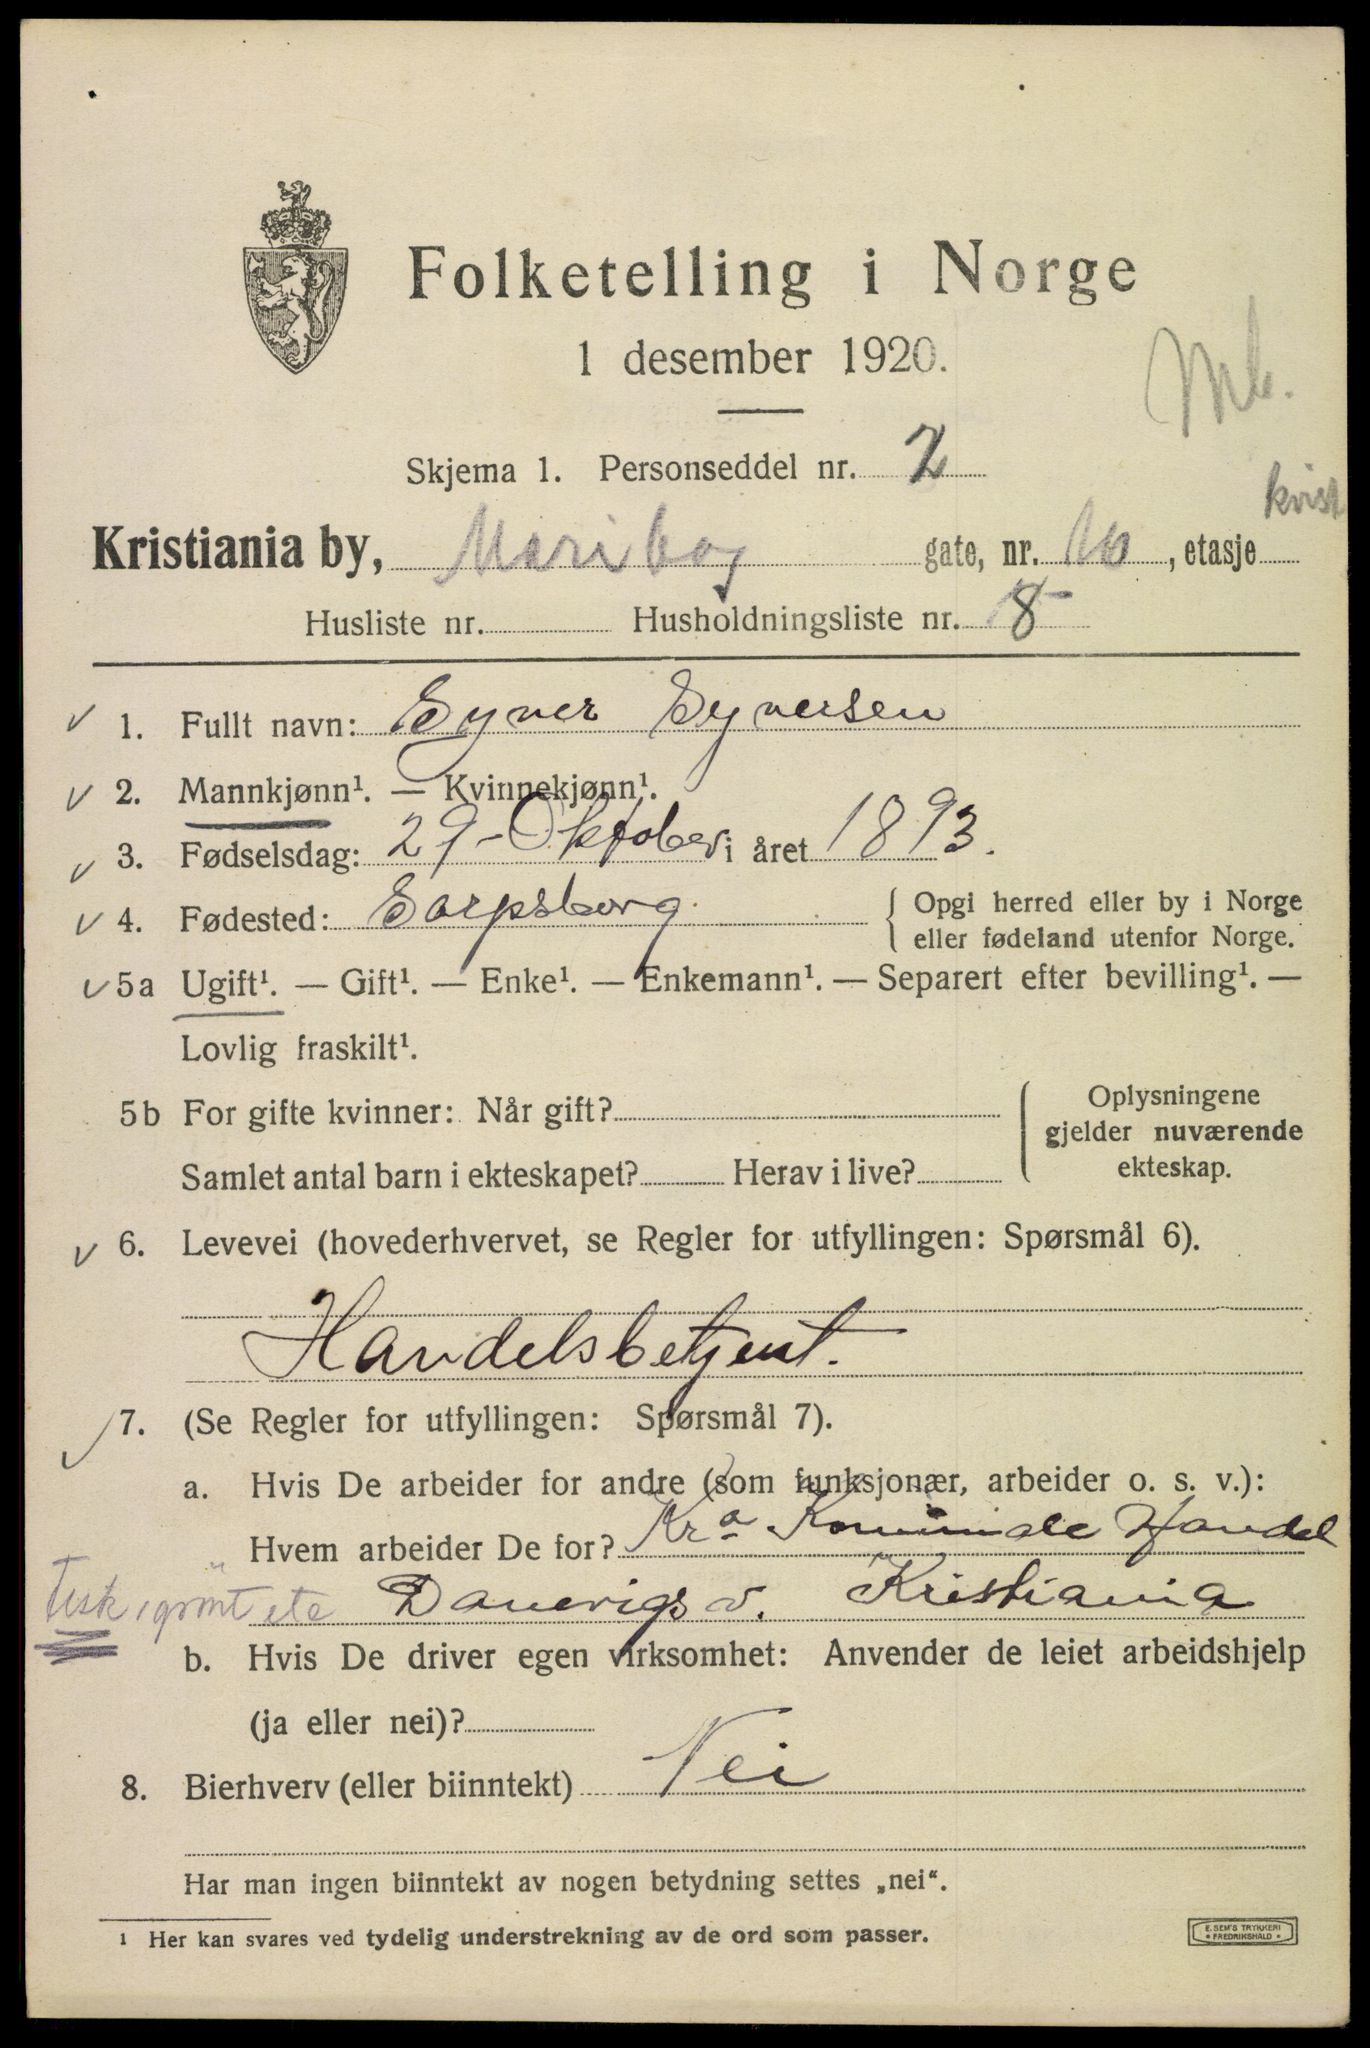 Folketelling i Norge
1 desember 1920.
Mb.
Skjema 1. Personseddel nr. 2
kvist
Kristiania by, Maribog gate, nr. 10, etasje
Husliste nr. Husholdningsliste nr. 8
1. Fullt navn: Syver Syversen
2. Mannkjønn¹. — Kvinnekjønn¹.
3. Fødselsdag: 29-Oktober i året 1893.
4. Fødested: Sarpsborg { Opgi herred eller by i Norge
eller fødeland utenfor Norge.
5a Ugift¹. — Gift¹. — Enke¹. — Enkemann¹. — Separert efter bevilling¹. —
Lovlig fraskilt¹.
5b For gifte kvinner: Når gift? { Oplysningene
gjelder nuværende
Samlet antal barn i ekteskapet? Herav i live? ekteskap.
6. Levevei (hovederhvervet, se Regler for utfyllingen: Spørsmål 6).
Handelsbetjent.
7. (Se Regler for utfyllingen: Spørsmål 7).
a. Hvis De arbeider for andre (som funksjonær, arbeider o. s. v.):
Hvem arbeider De for? Kra Komunale Handel
Fisk, grønt etc Danevigs v. Kristiania
b. Hvis De driver egen virksomhet: Anvender de leiet arbeidshjelp
(ja eller nei)?
8. Bierhverv (eller biinntekt) Nei
Har man ingen biinntekt av nogen betydning settes „nei“.
1 Her kan svares ved tydelig understrekning av de ord som passer.
E. SEM'S TRYKKERI
• FREDRIKSHALD •